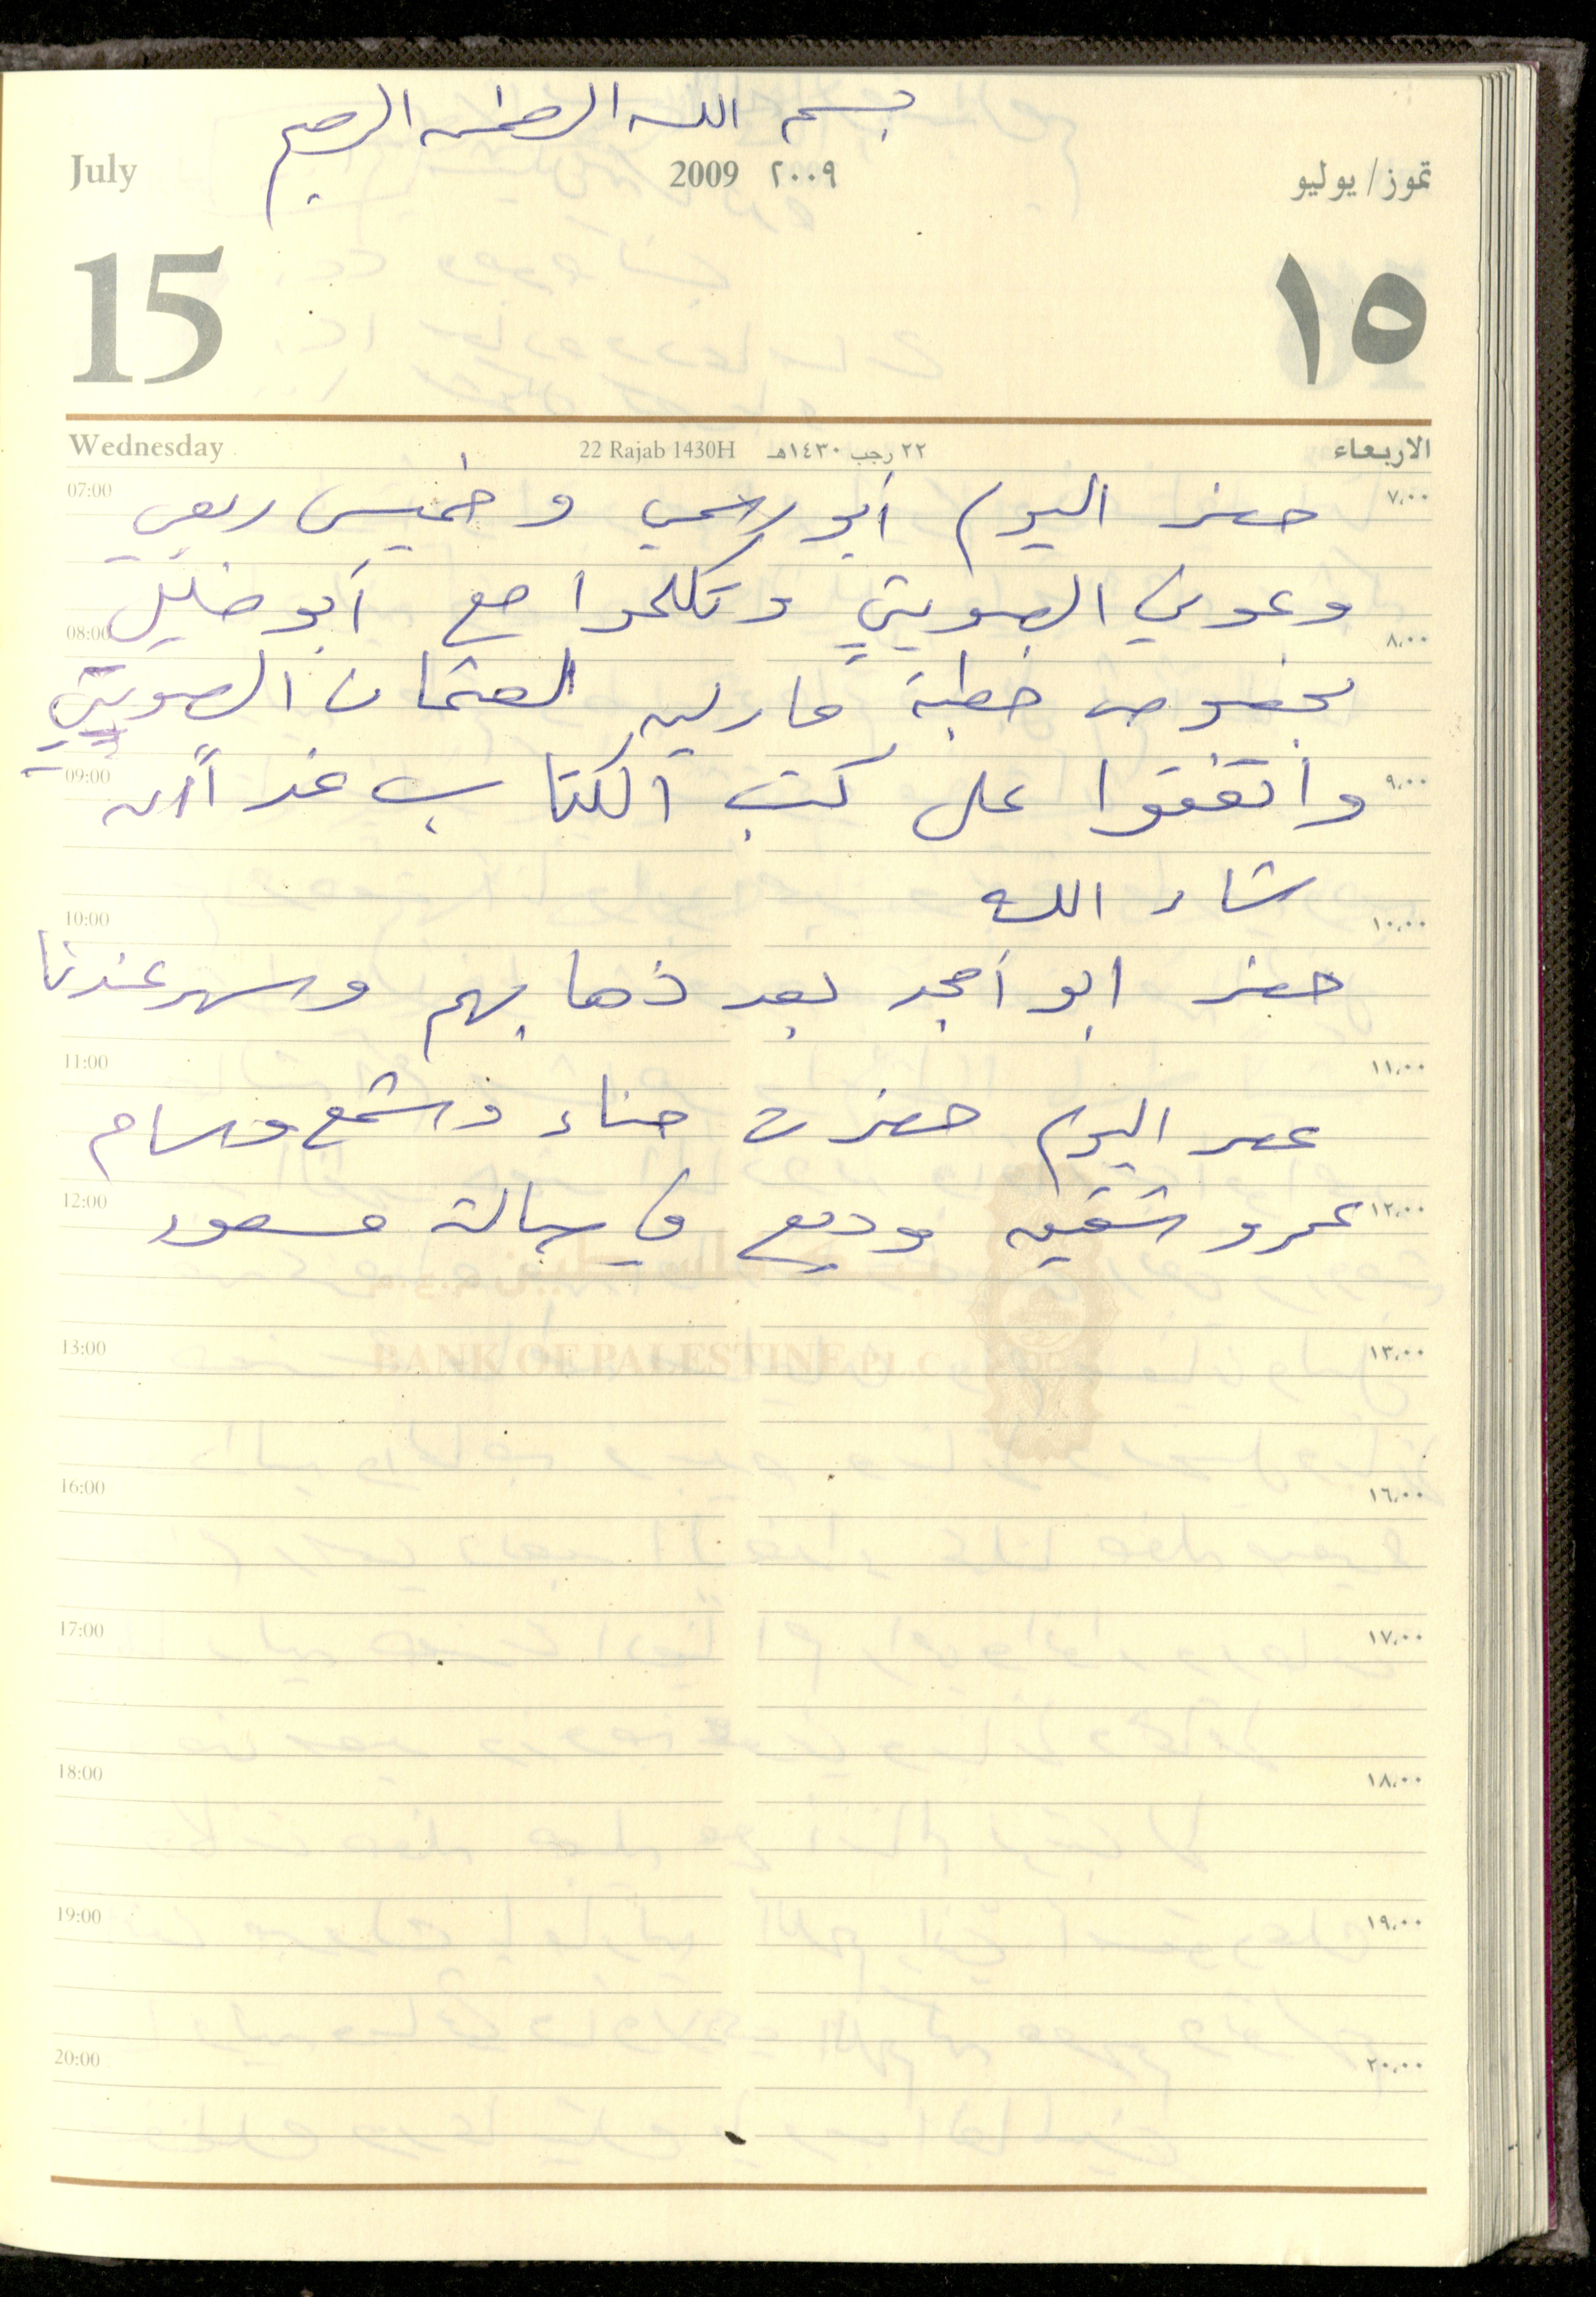 بسم الله الرحمن الرحيم
July 2009 ٢٠٠٩ تموز/يوليو
15 ١٥
Wednesday 22 Rajab 1430H ٢٢ رجب ١٤٣٠هـ الاربعاء
07:00 حضر اليوم أبو راسمي وخميس ربعي ٧،٠٠
وعوني الصويتي وتكلموا مع أبو خليل
08:00 ٨،٠٠
بخصوص خطبة مارلين لعثمان الصويتي
09:00 واتفقوا على كتب الكتاب غداً ان ٩،٠٠
شاء الله
10:00 ١٠،٠٠
حضر ابو أمجد بعد ذهابهم وسهر عندنا
11:00 ١١،٠٠
عصر اليوم حضرت هناء وشمع وسام
12:00 عمرو شقيق وديع في صالة مسعود ١٢،٠٠
BANK OF PALESTINE P.L.C
13:00 ١٣،٠٠
16:00 ١٦،٠٠
17:00 ١٧،٠٠
18:00 ١٨،٠٠
19:00 ١٩،٠٠
20:00 ٢٠،٠٠